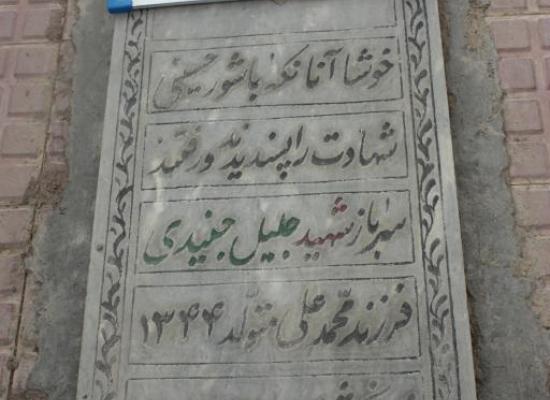 خوشا آنانکه با شور حسینی
شهادت را پسندیدند و رفتند
سرباز شهید جلیل جنیدی
فرزند محمد علی متولد ۱۳۴۴